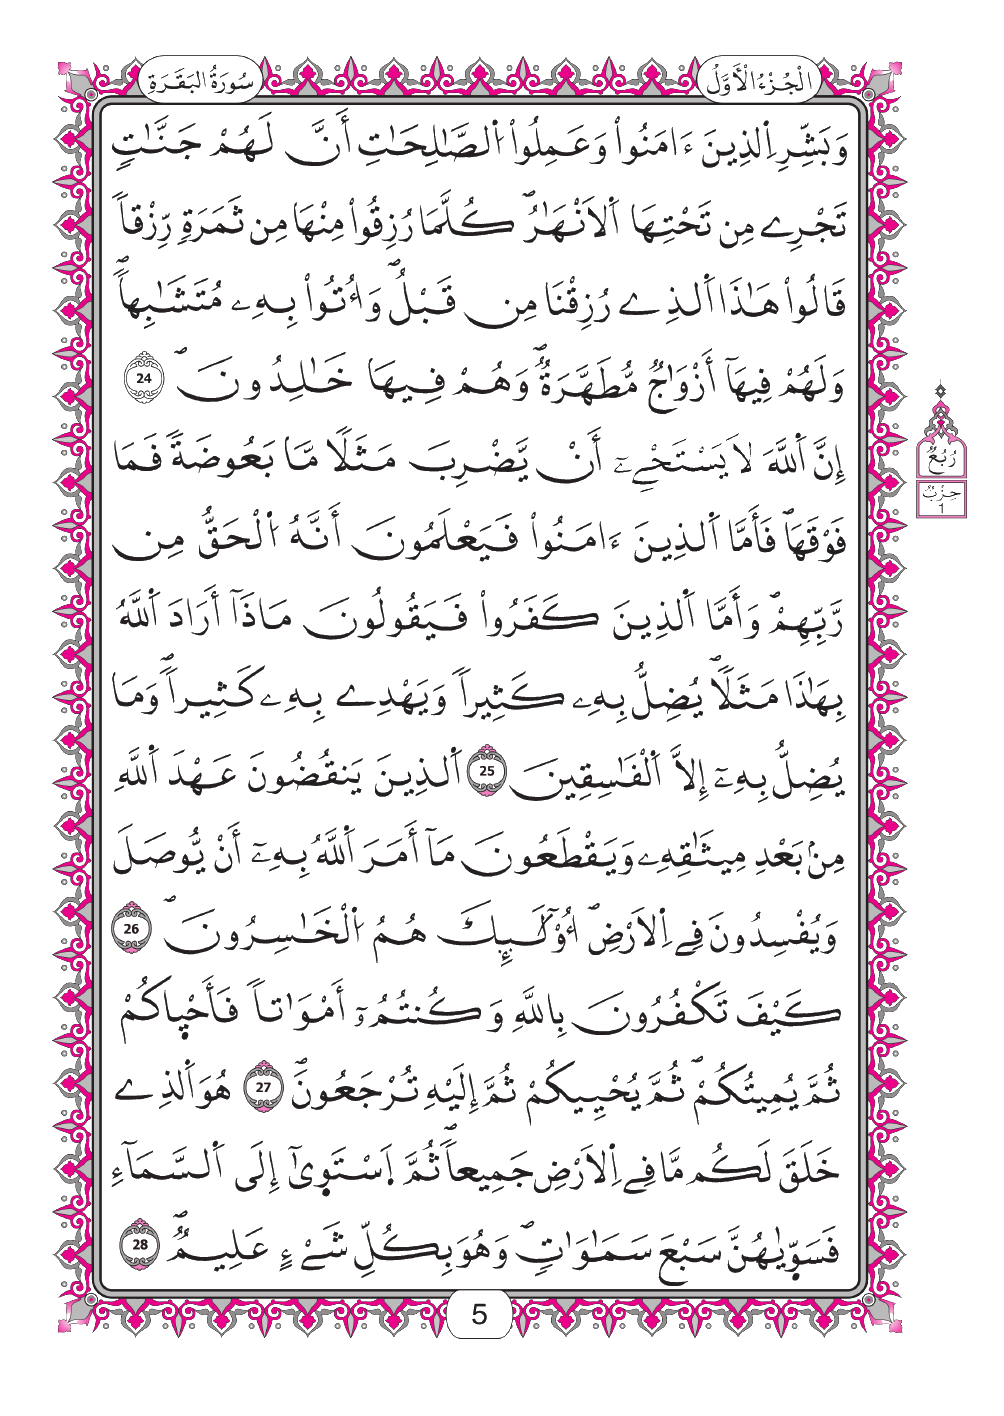 الْجُزْءُ الْأَوَّلُ
سُورَةُ الْبَقَرَةِ
وَبَشِّرِ اِ۬لذِينَ ءَامَنُواْ وَعَمِلُواْ اُ۬لصَّٰلِحَٰتِ أَنَّ لَهُمْ جَنَّٰتٖ
تَجْرِے مِن تَحْتِهَا اَ۬لَانْهَٰرُۖ كُلَّمَا رُزِقُواْ مِنْهَا مِن ثَمَرَةٖ رِّزْقاٗ
قَالُواْ هَٰذَا اَ۬لذِے رُزِقْنَا مِن قَبْلُۖ وَأُتُواْ بِهِۦ مُتَشَٰبِهاٗۖ
وَلَهُمْ فِيهَآ أَزْوَٰجٞ مُّطَهَّرَةٞۖ وَهُمْ فِيهَا خَٰلِدُونَۖ 24
إِنَّ اَ۬للَّهَ لَا يَسْتَحْيِۦٓ أَنْ يَّضْرِبَ مَثَلٗا مَّا بَعُوضَةٗ فَمَا
فَوْقَهَاۖ فَأَمَّا اَ۬لذِينَ ءَامَنُواْ فَيَعْلَمُونَ أَنَّهُ اُ۬لْحَقُّ مِن
رَّبِّهِمْۖ وَأَمَّا اَ۬لذِينَ كَفَرُواْ فَيَقُولُونَ مَاذَآ أَرَادَ اَ۬للَّهُ
بِهَٰذَا مَثَلاٗۖ يُضِلُّ بِهِۦ كَثِيراٗ وَيَهْدِے بِهِۦ كَثِيراٗۖ وَمَا
يُضِلُّ بِهِۦٓ إِلَّا اَ۬لْفَٰسِقِينَ 25 اَ۬لذِينَ يَنقُضُونَ عَهْدَ اَ۬للَّهِ
مِنۢ بَعْدِ مِيثَٰقِهِۦ وَيَقْطَعُونَ مَآ أَمَرَ اَ۬للَّهُ بِهِۦٓ أَنْ يُّوصَلَ
وَيُفْسِدُونَ فِے اِ۬لَارْضِۖ أُوْلَٰٓئِكَ هُمُ اُ۬لْخَٰسِرُونَۖ 26
كَيْفَ تَكْفُرُونَ بِاللَّهِ وَكُنتُمُۥٓ أَمْوَٰتاٗ فَأَحْي۪اكُمْ
ثُمَّ يُمِيتُكُمْۖ ثُمَّ يُحْيِيكُمْ ثُمَّ إِلَيْهِ تُرْجَعُونَۖ 27 هُوَ اَ۬لذِے
خَلَقَ لَكُم مَّا فِے اِ۬لَارْضِ جَمِيعاٗۖ ثُمَّ اَ۪سْتَو۪يٰٓ إِلَى اَ۬لسَّمَآءِ
فَسَوّ۪يٰهُنَّ سَبْعَ سَمَٰوَٰتٖۖ وَهُوَ بِكُلِّ شَےْءٍ عَلِيمٞۖ 28
رُبُعُ
حِزْبٌ
1
5